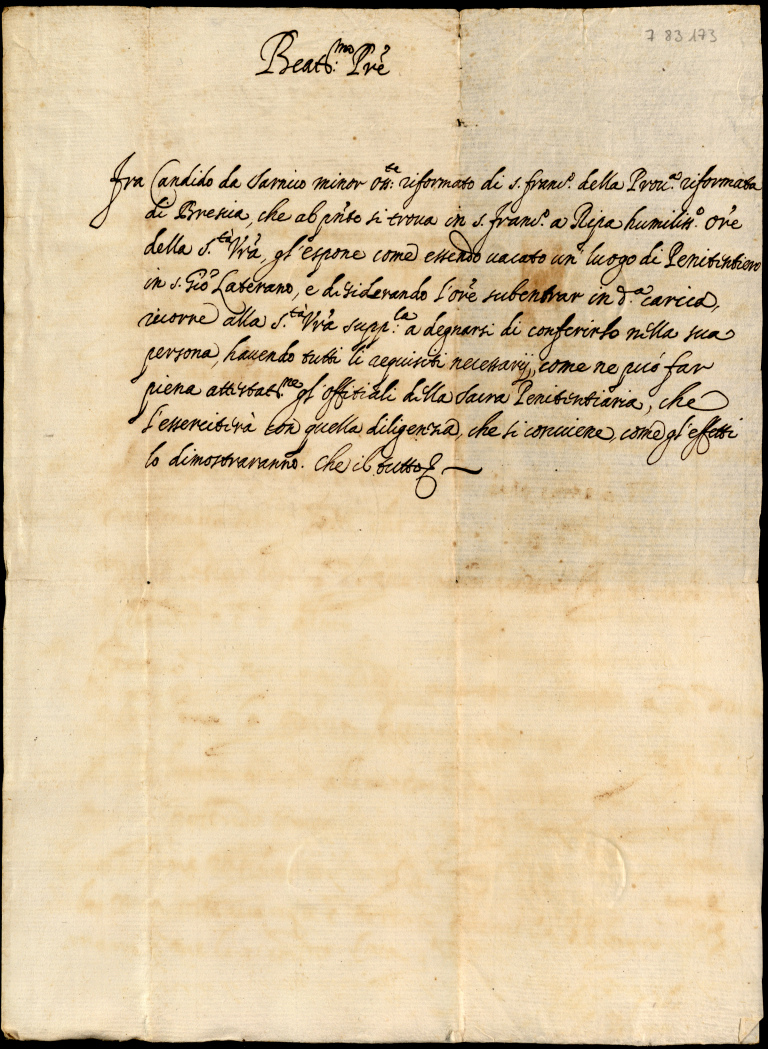 7 83 173
Beat:mo Pre
Fra Candido da Sarnico minor oss:te riformato di s. franc.o della Prou.a riformata
di Brescia, che al pnte si troua in s. franc.o a Ripa humiliss.o Ore
della S.tà Vra, gl'espone come essendo uacato un' luogo di Penitentiero
in s. Gio Laterano, e desiderando l'ore subentrar in d.a carica,
ricorre alla S.tà Vra supp.la a degnarsi di conferirlo nella sua
persona, hauendo tutti li requisiti necessarij, come ne può far
piena attestat.ne gl'offitiali della Sacra Penitentiaria, che
l'essercitarà con quella diligenza, che si conuiene, come gl'effetti
lo dimostraranno. Che il tutto